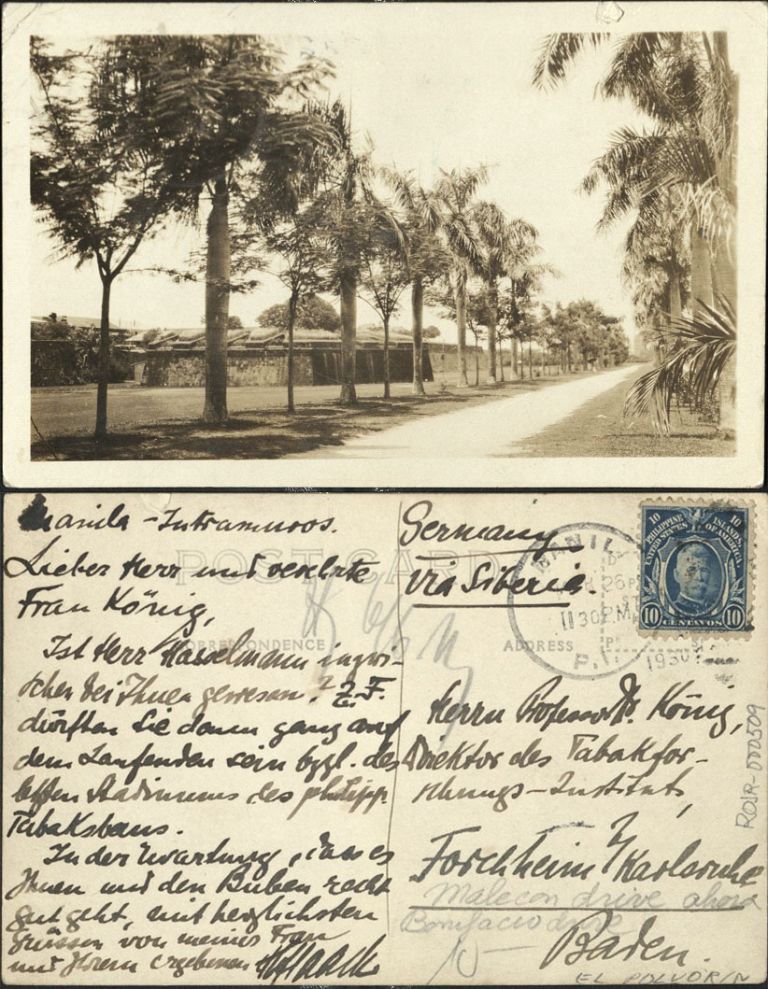 Manila - Intramuros.
Lieber Herr und verehrte
Frau König,
Ist Herr Hasselmann inzwi-
schen bei Ihnen gewesen? z. F.
dürften Sie dann ganz auf
dem Laufenden sein bzgl. des
Stadiums des philipp.
Tabakbaus.
In der Erwartung, dass es
Ihnen und den Buben recht
gut geht, mit herzlichsten
Grüssen von meiner Frau
und Ihrem ergebenen
POST CARD
CORRESPONDENCE
ADDRESS
Germany
via Siberia.
MANILA
26
1130 PM
P.I.
1930
PHILIPPINE ISLANDS
UNITED STATES OF AMERICA
10 10
10 CENTAVOS 10
Herrn Professor Dr. König,
Direktor des Tabakfor-
schungs-Instituts,
Forchheim b/Karlsruhe
Malecon drive ahora
Bonifacio drive
Baden.
EL POLVORIN
ROLR-000509